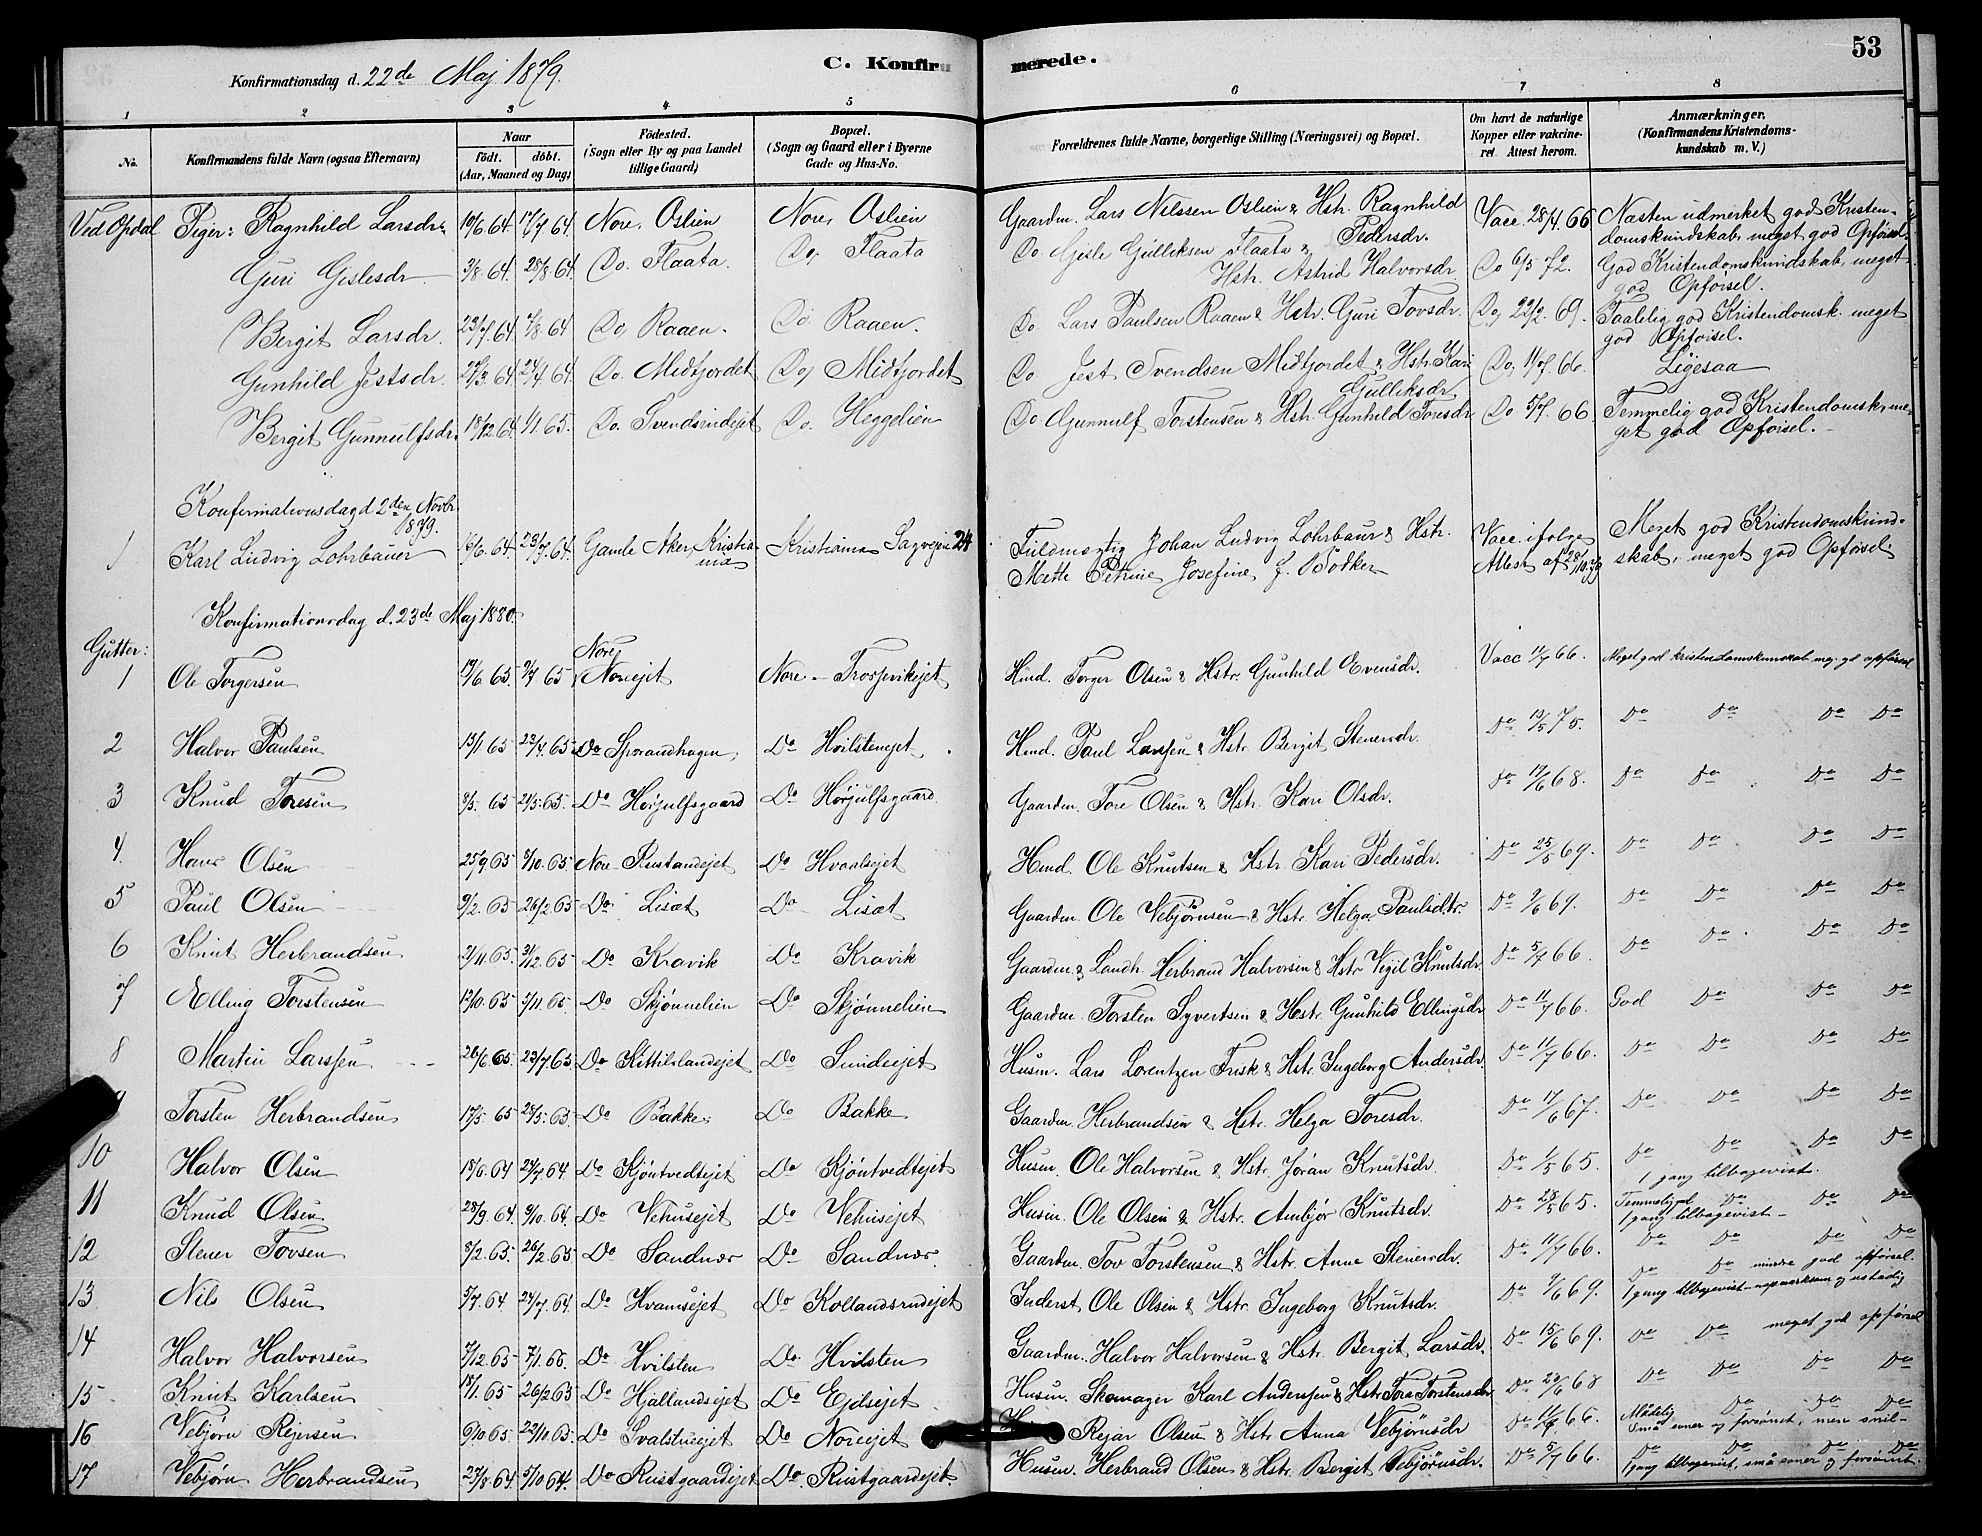 53
C. Konfirmerede.
Konfirmationsdag d. 22de Maj 1879.
1 2 3 4 5 6 7 8
No. Konfirmandens fulde Navn (ogsaa Efternavn) Naar födt. döbt. (Aar, Maaned og Dag) Födested. (Sogn eller By og paa Landet tillige Gaard) Bopæl. (Sogn og Gaard eller i Byerne Gade og Hus-No. Forældrenes fulde Navne, borgerlige Stilling (Næringsvei) og Bopæl. Om havt de naturlige Kopper eller vakcineret. Attest herom. Anmærkninger. (Konfirmandens Kristendomskundskab m. V.)
Ved Opdal Piger: Ragnhild Larsdr. 19/6 64 17/7 64 Nore, Oslien Nore, Oslien Gaardm. Lars Nilssen Oslien & Hstr. Ragnhild Pedersdr. Vacc. 28/4 66 Næsten udmerket god Kristendomskundskab, meget god Opførsel.
Guri Gislesdr. 3/8 64 28/8 64 Do. Flaata. Do, Flaata Do Gisle Gulliksen Flaata & Hstr. Astrid Halvorsdr Do 6/5 72. God Kristendomskundskab, meget god Opførsel.
Bergit Larsdr. 23/7 64 7/8 64 Do, Raaen. Do. Raaen. Do Lars Paulsen Raaen & Hstr. Guri Tovsdr. Do, 22/2 69. Taalelig god Kristendomsk. meget god Opførsel.
Gunhild Jestsdr. 24/4 64 Do. Midtfjordet Do, Midtfjordet Do Jest Svendsen Midtfjordet & Hstr. Kari Gulliksdr Do, 11/7 66. Ligesaa
Bergit Gunnulfsdr. 18/12 64 1/1 65. Do. Svendsrudejet Do. Heggelien Do Gunnulf Torstensen & Hstr. Gunhild Toresdr Do 5/7 66 Temmelig god Kristendomsk, meget god Opførsel.
Konfirmationsdag d 2den Novbr. 1879.
1 Karl Ludvig Lohrbauer 16/6 64 23/7 64 Gamle Aker, Kristiania Kristiania Sagvejen 24 Fuldmægtig Johan Ludvig Lohrbaur & Hstr. Mette Petrine Josefine f. Bödker Vacc. ifølge Attest af 28/10 79 Meget god Kristendomskundskab, meget god Opførsel.
Konfirmationsdag d. 23de Maj 1880.
Gutter:
1 Ole Torgersen 19/6 65. 9/7 65 Nore Noreejet Nore - Hmd. Torger Olsen & Hstr. Gunhild Evensdr. Vacc 11/7 66. Meget god kristendomskunskab meg. gd opførsel
2 Halvor Paulsen 13/1 65 23/4 65 Do Sporandhagen Do Hvilstenejet Hmd. Paul Larssen & Hstr. Bergit Stenersdr. Do 13/5 75. Do Do Do Do
3 Knud Toresen 8/5. 65 21/5 65. Do Hørjulfsgaard Do Hørjulfsgaard Gaardm. Tore Olsen & Hstr. Kari Olsdr. Do 17/6 68. Do Do Do Do
4. Hans Olsen 25/9 65 8/10 65 Nore Rustandejet Do Hvaalsejet Hmd. Ole Knutsen & Hstr Kari Pedersdr. Do 25/5 69. Do Do Do Do
5 Paul Olsen 9/2. 65 26/2 65 Do Lisæt Do Lisæt Gaardm. Ole Vebjørnsen & Hstr. Helga Paulsdtr. Do 9/6 69. Do Do Do Do
6 Knut Herbrandsen 21/11 65. 31/12. 65 Do Kravik Do Kravik Gaardm. & Landh. Herbrand Halvorsen & Hstr Vigil Knutsdr Do 5/7 66. Do Do Do Do
7 Elling Torstensen 12/10 65 5/11 65 Do Skjønnelien Do Skjønnelien Gaardm. Torsten Syvertsen & Hstr. Gunhild Ellingsdr Do 11/7 66. God Do Do Do
8 Martin Larssen 20/6 65 23/7 65 Do Kittilslandejet Do Sundeejet Husm. Lars Lorentzen Frisk & Hstr. Ingeborg Andersdr. Do 11/7 66. Do Do Do Do
9 Torsten Herbrandsen 17/5 65 28/5 65. Do Bakke Do Bakke Gaardm. Herbrandsen & Hstr. Helga Toresdr. Do 17/6 67. Do Do Do Do
10 Halvor Olsen 18/6. 64 24/7 64 Do Kjöntvedtejet Do Kjöntvedtejet Husm. Ole Halvorsen & Hstr. Jøran Knutsdr. Do 1/5 65. Do Do Do Do 1 gang tilbagevist.
11 Knud Olsen 28/9. 64 9/10 64. Do Vehusejet Do Vehusejet Husm. Ole Olsen & Hstr. Ambjør Knutsdr. Do 28/5 65. Temmeligod Do Do Do 1 gang tilbagevist -
12 Stener Tovsen 8/2. 65. 26/2 65 Do Sandnæs Do Sandnæs. Gaardm. Tov Torstensen & Hstr. Anne Stenersdr. Do 11/7 66. Do Do Do Do
13 Nils Olsen 5/7. 64 24/7 64. Do Hvamsejet Do Kollandsrudejet Inderst Ole Olsen & Hstr. Ingeborg Knutsdr. Do 9/6 69. Do Do mindre god opførsel. 1 gang tilbagevist - uopmærksom og ustadig
14 Halvor Halvorsen 7/12 65 7/1. 66. Do Hvilsten Do Hvilsten Gaardm. Halvor Halvorsen & Hstr. Bergit Larsdr. Do 15/6 69. Do Do meget god opførsel
15 Knut Karlsen 18/1. 65 26/2 65 Do Hjallandsejet Do Ejdsejet Husm. Skomager Karl Anderssen & Hstr Tora Torstensdr Do 20/6 68 Do Do Do Do
16 Vebjørn Rejersen 9/10 65 22/10 65. Do Do Noreejet Rejar Olsen & Hstr Anna Vebjörnsdr Do 11/7 66. Mådelig Do Do Do små evner og forsømt, men snil -
17 Vebjørn Herbrandsen 27/8 64. 5/10 64 Do Rustgaardejet Do Rustgaardejet. Husm. Herbrand Olsen & Hstr. Berget Vebjörnsdr. Do 5/7 66. Do Do Do Do 1 gang tilbagevist, små evner og forsömt.